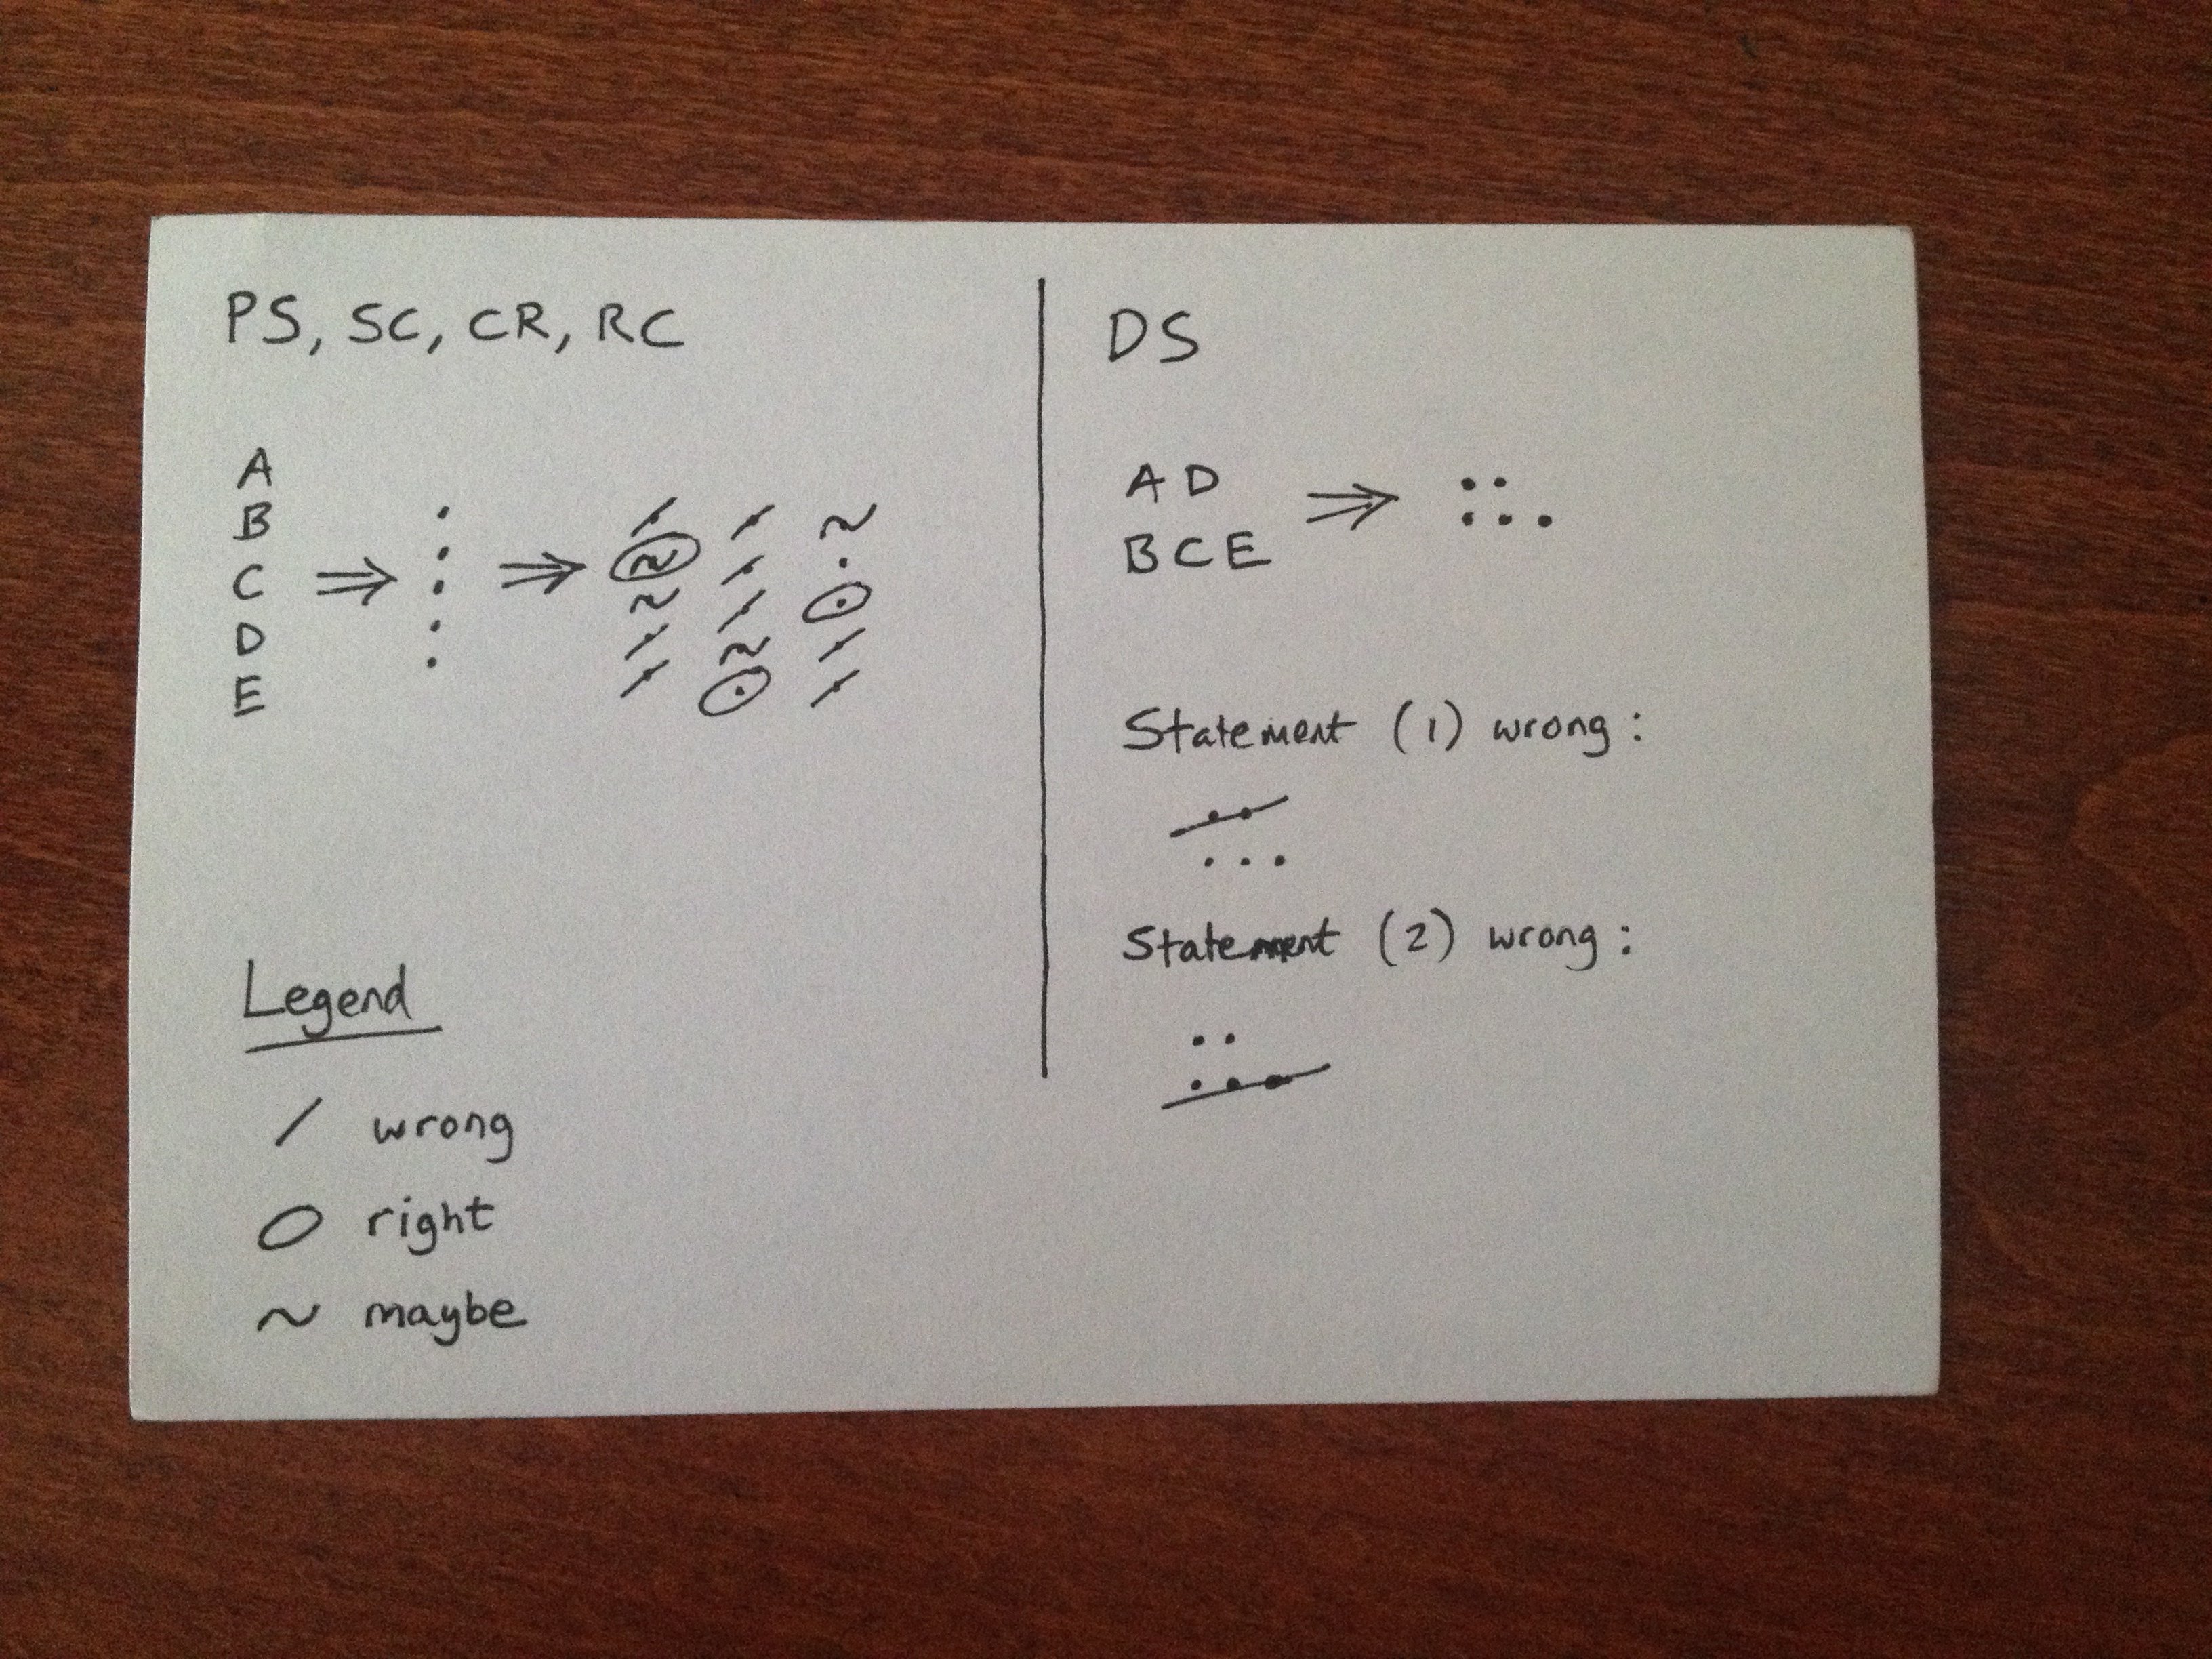 PS, SC, CR, RC
A
B
C
D
E
Legend
/ wrong
O right
~ maybe
DS
A D
B C E
Statement (1) wrong:
Statement (2) wrong: